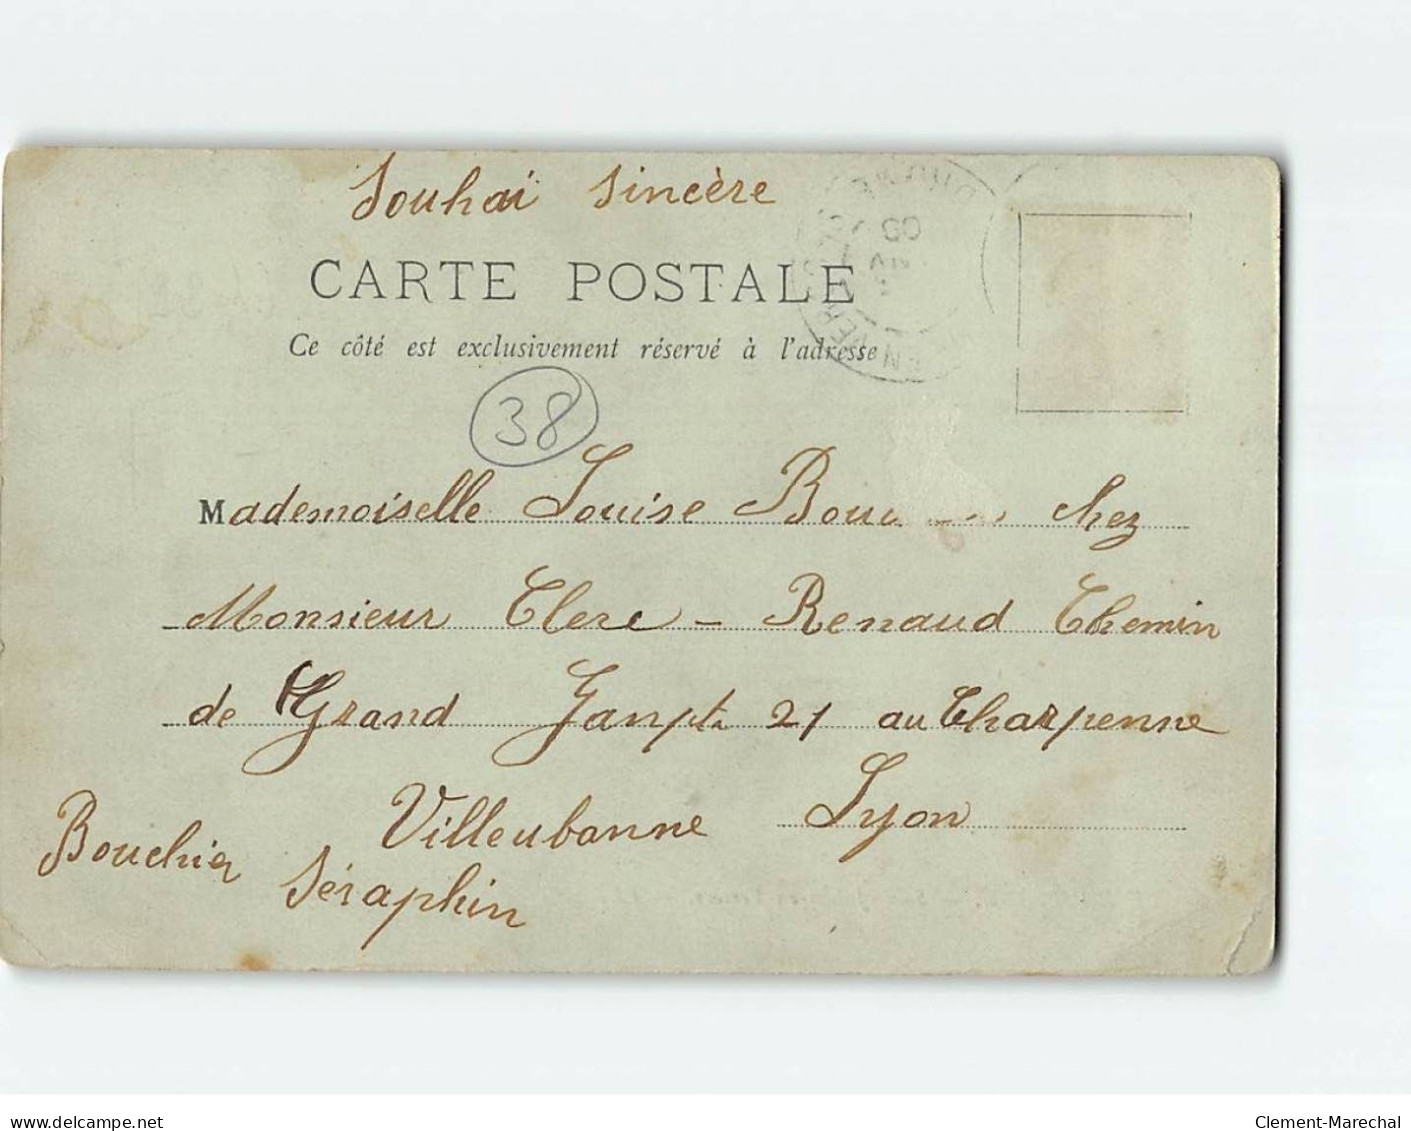 Souhai Sincère
CARTE POSTALE
Ce côté est exclusivement réservé à l'adresse
38
Mademoiselle Louise chez
Monsieur Clerc - Renaud Chemin
de Grand 21 au Charpenne
Villeubanne Lyon
Bouchier Séraphin
www.delcampe.net
Clement-Marechal